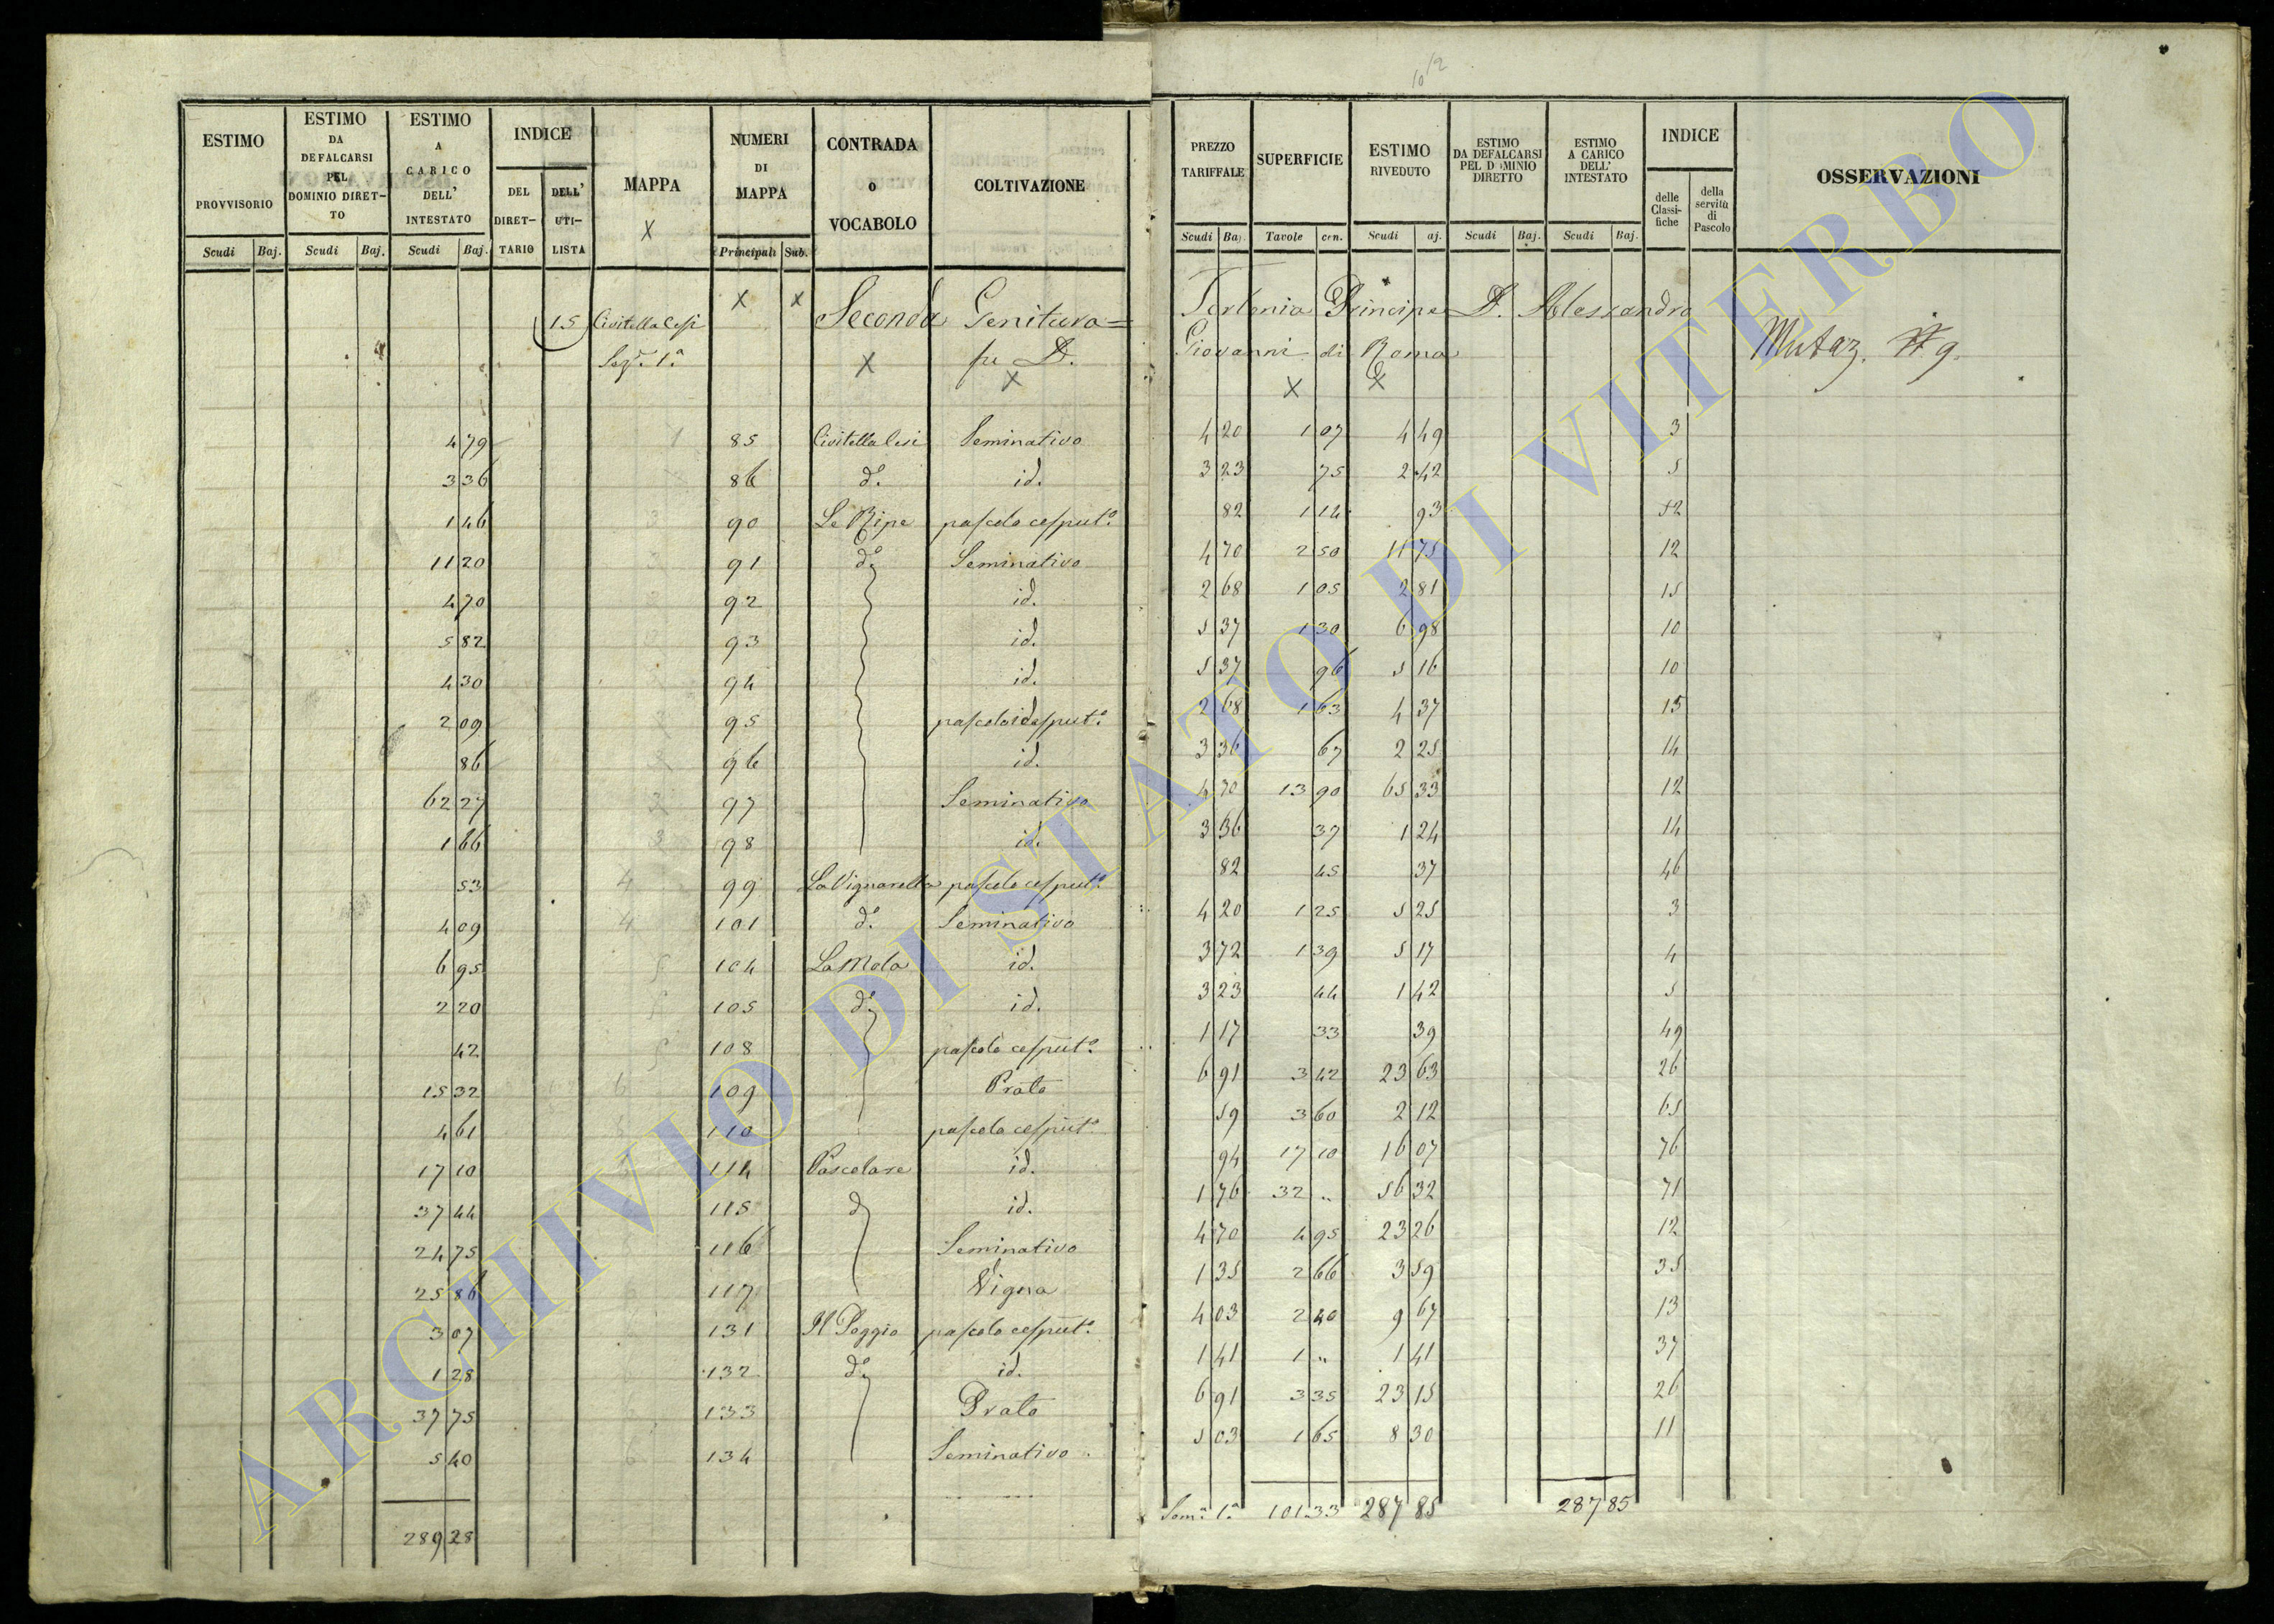 10/2
ESTIMO PROVVISORIO | ESTIMO DA DEFALCARSI PEL DOMINIO DIRET-TO | ESTIMO A CARICO DELL' INTESTATO | INDICE DEL DIRET-TARIO | DELL' UTI-LISTA | MAPPA | NUMERI DI MAPPA | CONTRADA o VOCABOLO | COLTIVAZIONE | PREZZO TARIFFALE | SUPERFICIE | ESTIMO RIVEDUTO | ESTIMO DA DEFALCARSI PEL DOMINIO DIRETTO | ESTIMO A CARICO DELL' INTESTATO | INDICE delle Classi-fiche | della servitù di Pascolo | OSSERVAZIONI
Scudi Baj. | Scudi Baj. | Scudi Baj. | Principali Sub. | Scudi Baj. | Tavole cen. | Scudi aj. | Scudi Baj. | Scudi Baj.
15 Civitella Cesi Seconda Genitura = Torlonia Principe D. Alessandro
Sez. 1ª fu D. Giovanni di Roma Mutaz. N 9
4 79 1 85 Civitella Cesi Seminativo 4 20 1 07 4 49 3
3 36 86 dº id. 3 23 75 2 42 5
1 46 90 Le Ripe pascolo cesputº 82 1 14 93 52
11 20 91 dº Seminativo 4 70 2 50 11 75 12
4 70 92 id. 2 68 1 05 2 81 15
5 82 93 id. 5 37 1 30 6 98 10
4 30 94 id. 5 37 96 5 16 10
2 09 95 pascolo id cesputº 2 68 1 63 4 37 15
86 96 id. 3 36 67 2 25 14
62 27 97 Seminativo 4 70 13 90 65 33 12
1 66 3 98 id. 3 36 37 1 24 14
53 4 99 La Vignarella pascolo cesputº 82 45 37 46
4 09 4 101 dº Seminativo 4 20 1 25 5 25 3
6 95 5 104 La Mola id. 3 72 1 39 5 17 4
2 20 5 105 dº id. 3 23 44 1 42 5
42 5 108 pascolo cesputº 1 17 33 39 49
15 32 6 109 Prato 6 91 3 42 23 63 26
4 61 110 pascolo cesputº 59 3 60 2 12 65
17 10 114 Pascolare id. 94 17 10 16 07 76
37 44 115 d id. 1 76 32 " 56 32 71
24 75 116 Seminativo 4 70 4 95 23 26 12
25 86 117 Vigna 1 35 2 66 3 59 35
3 07 131 Il Poggio pascolo cesputº 4 03 2 40 9 67 13
1 28 132 dº id. 1 41 1 " 1 41 37
37 75 133 Prato 6 91 3 35 23 15 26
5 40 6 134 Seminativo 5 03 1 65 8 30 11
289 28 Somª 1ª 101 33 287 85 287 85
ARCHIVIO DI STATO DI VITERBO